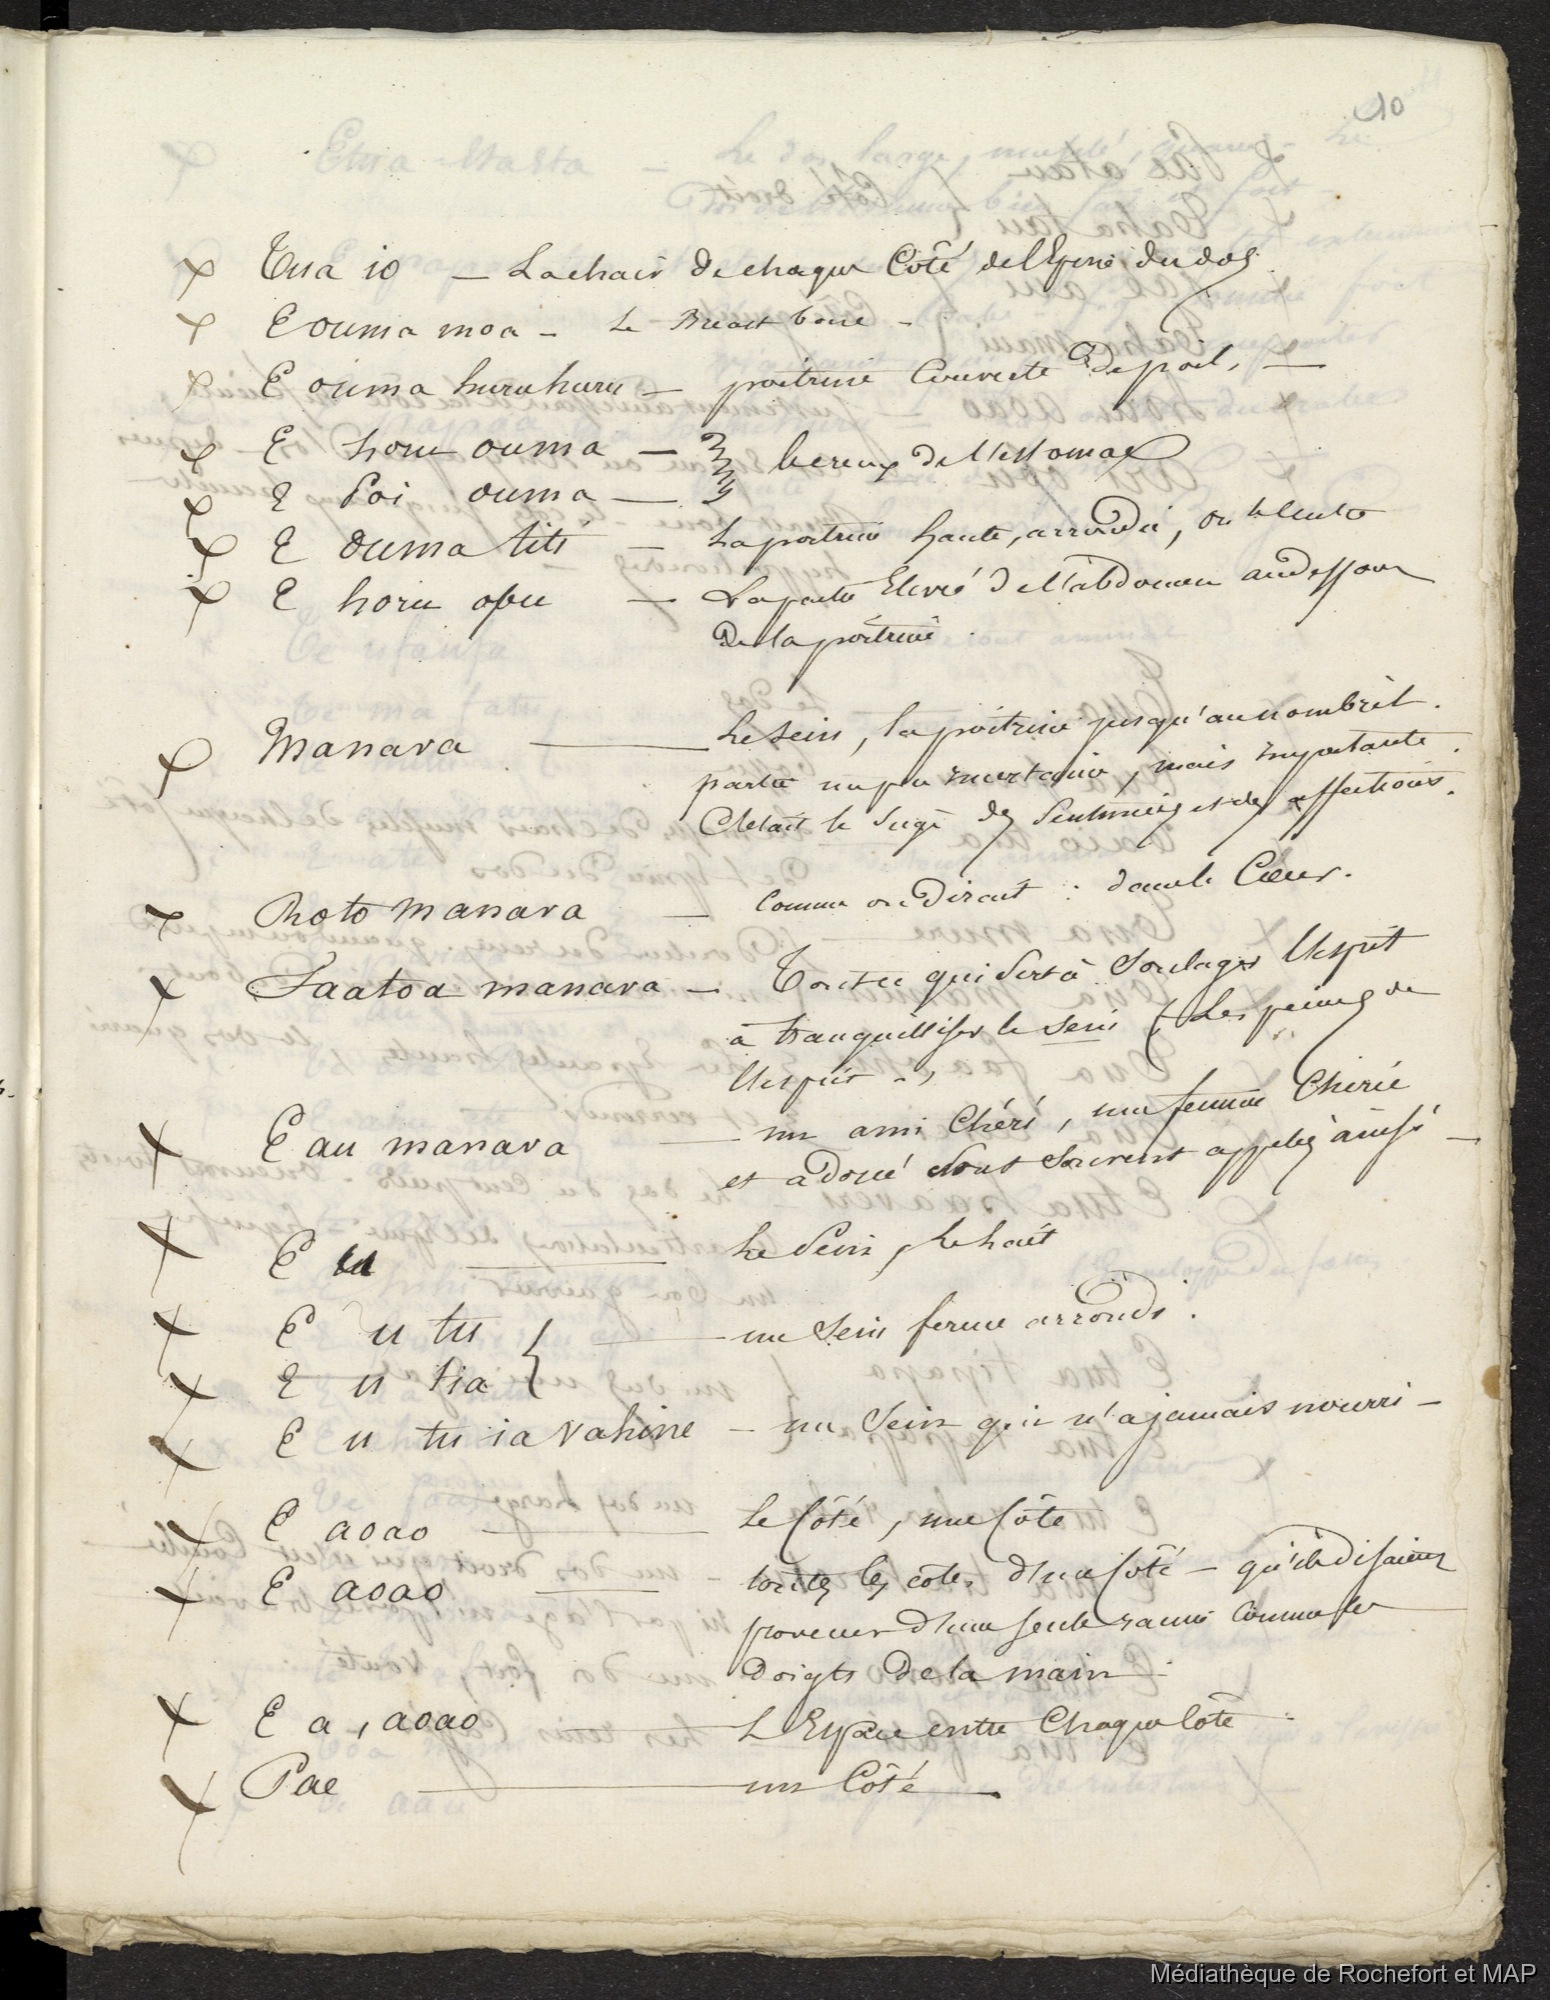 10
Tua io — La chair de chaque Côté de l'Epine du dos
E ouma moa — Le Breast bone —
E ouma huruhuru — poitrine Couverte de poil, —
E horu ouma — } le creux de l'estomac
E Poi ouma —
E ouma titi — La poitrine haute, arrondie, ou le ventre
E horu opu — La partie Elevée de l'abdomen au dessous
de la poitrine.
Manava — Le sein, la poitrine jusqu'au nombril.
partie un peu incertaine, mais importante.
C'était le siège des sentimens et des affections.
Roto manava — Comme on dirait : dans le Cœur.
Faatoa manava — Tout ce qui sert à soulager l'esprit
à tranquilliser le sein ( Les peines de
l'esprit —,
E au manava — un ami Chéri, une femme Chérie
et adoré sont souvent appelés ainsi —
E u — Le Sein, le lait
E u tu } — un sein ferme arrondi.
E u tia
E u tu ia vahine — un Sein qui n'a jamais nourri —
E aoao — Le Côté, une Côte
E aoao — toutes les côtes d'un Côté — qu'ils disaient
provenir d'une seule racine comme les
doigts de la main.
E a, aoao — L'Espace entre Chaque Côte.
Pae — un Côté —
Médiathèque de Rochefort et MAP